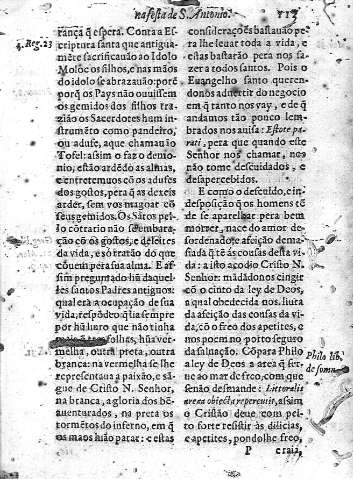 na festa de S. Antonio. 113
rança q̃ espera. Conta a Es-
4. Reg. 23
criptura santa que antigua-
mẽte sacrificauão ao Idolo
Moloc os filhos, e nas mãos
do idolo se abrazauão: porẽ
porq̃ os Pays não ouuissem
os gemidos dos filhos tra-
zião os Sacerdotes hum in-
strumẽto como pandeiro,
ou adufe, a que chamauão
Tofel: assim o faz o demo-
nio, estão ardẽdo as almas,
e entretemuos cõ os adufes
dos gostos, pera q̃ as deixeis
arder, sem vos magoar cõ
seus gemidos. Os Sãtos pe-
lo cõtrario não se embara-
ção cõ os gostos, e deleites
da vida, e só tratão do que
cõuem pera sua alma. E as-
sim preguntado hũ daquel-
les santos Padres antigos:
qual era a ocupação de sua
vida, respõdeo q̃ lia sempre
por hũ liuro que não tinha
mais q̃ tres folhas, hũa ver-
melha, outra preta, outra
branca: na vermelha se lhe
representaua a paixão, e sã-
gue de Cristo N. Senhor,
na branca, a gloria dos bẽ-
auenturados, na preta os
tormẽtos do inferno, em q̃
os maos hião parar: e estas
considerações bastauão pe-
ra lhe leuar toda a vida, e
estas bastarão pera nos fa-
zer a todos santos. Pois o
Euangelho santo queren-
donos aduertir do negocio
em q̃ tanto nos vay, e de q̃
andamos tão pouco lem-
brados nos auisa: Estote pa-
rati, pera que quando este
Senhor nos chamar, nos
não tome descuidados, e
desapercebidos.
E como o descuido, e in-
desposição q̃ os homens tẽ
de se aparelhar pera bem
morrer, nace do amor de-
sordenado, e afeição dema-
siada q̃ tẽ ás cousas desta vi-
da: a isto acode Cristo N.
Senhor: mãdãdonos cingir
cõ o cinto da ley de Deos,
a qual obedecida nos liura
da afeição das cousas da vi-
da, cõ o freo dos apetites, e
nos poem no porto seguro
da saluação. Cõpara Philo
Philo lib.
de somn.
a ley de Deos a area q̃ ser-
ue ao mar de freo, com que
se não desmande: Littoralis
arena obiectu repercutit, assim
o Cristão deue com pei-
to forte resistir ás dilicias,
e apetites, pondolhe freo,
P
e raia,